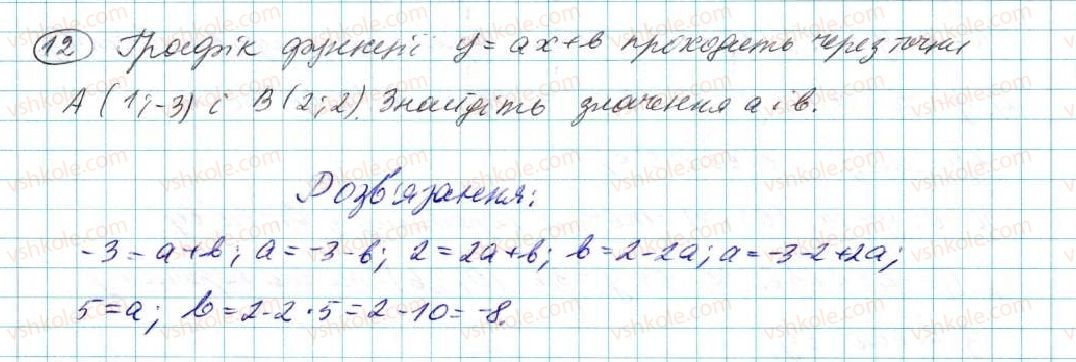 12 Графік функції y = ax + в проходить через точки
A (1; -3) і B (2; 2). Знайдіть значення a і в.
Розв'язання:
-3 = a + в; a = -3 - в; 2 = 2a + в; в = 2 - 2a; a = -3 - 2 + 2a;
5 = a; в = 2 - 2 · 5 = 2 - 10 = -8.